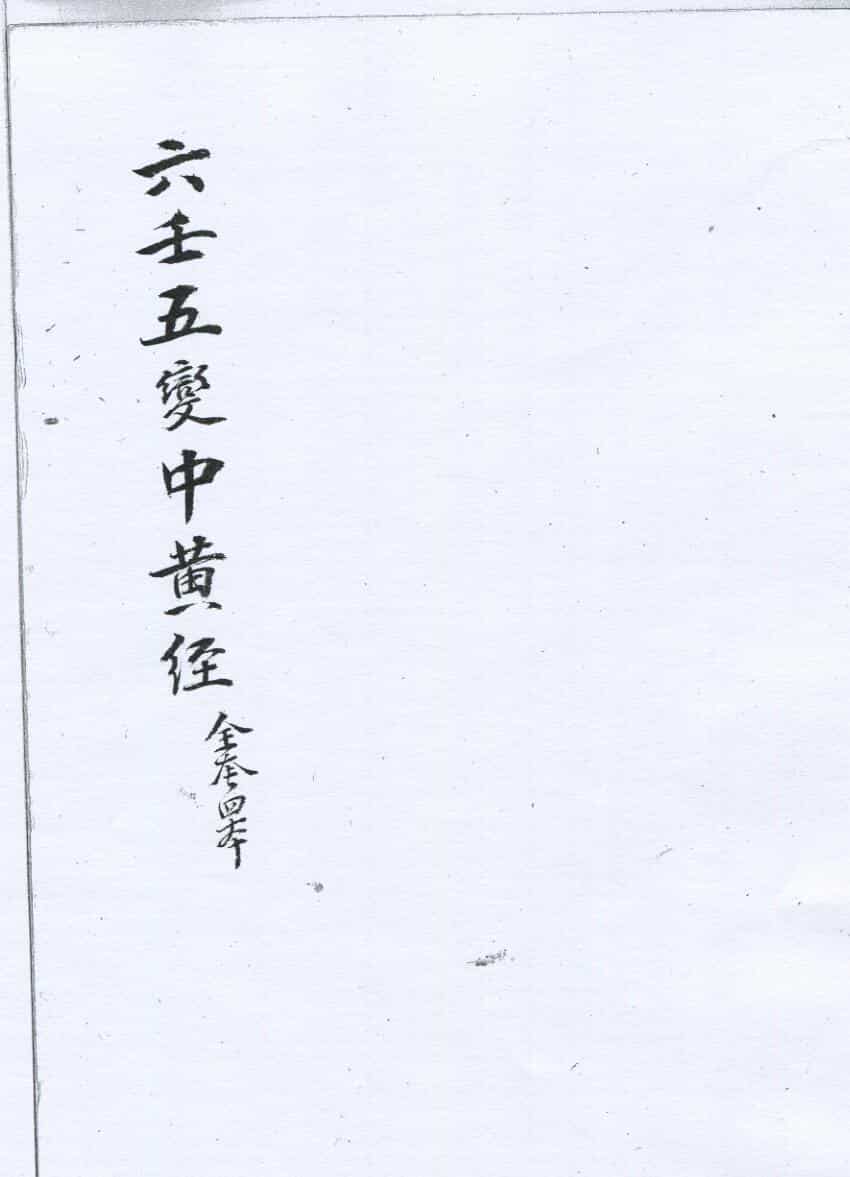 六壬五變中黄经
全叁四本